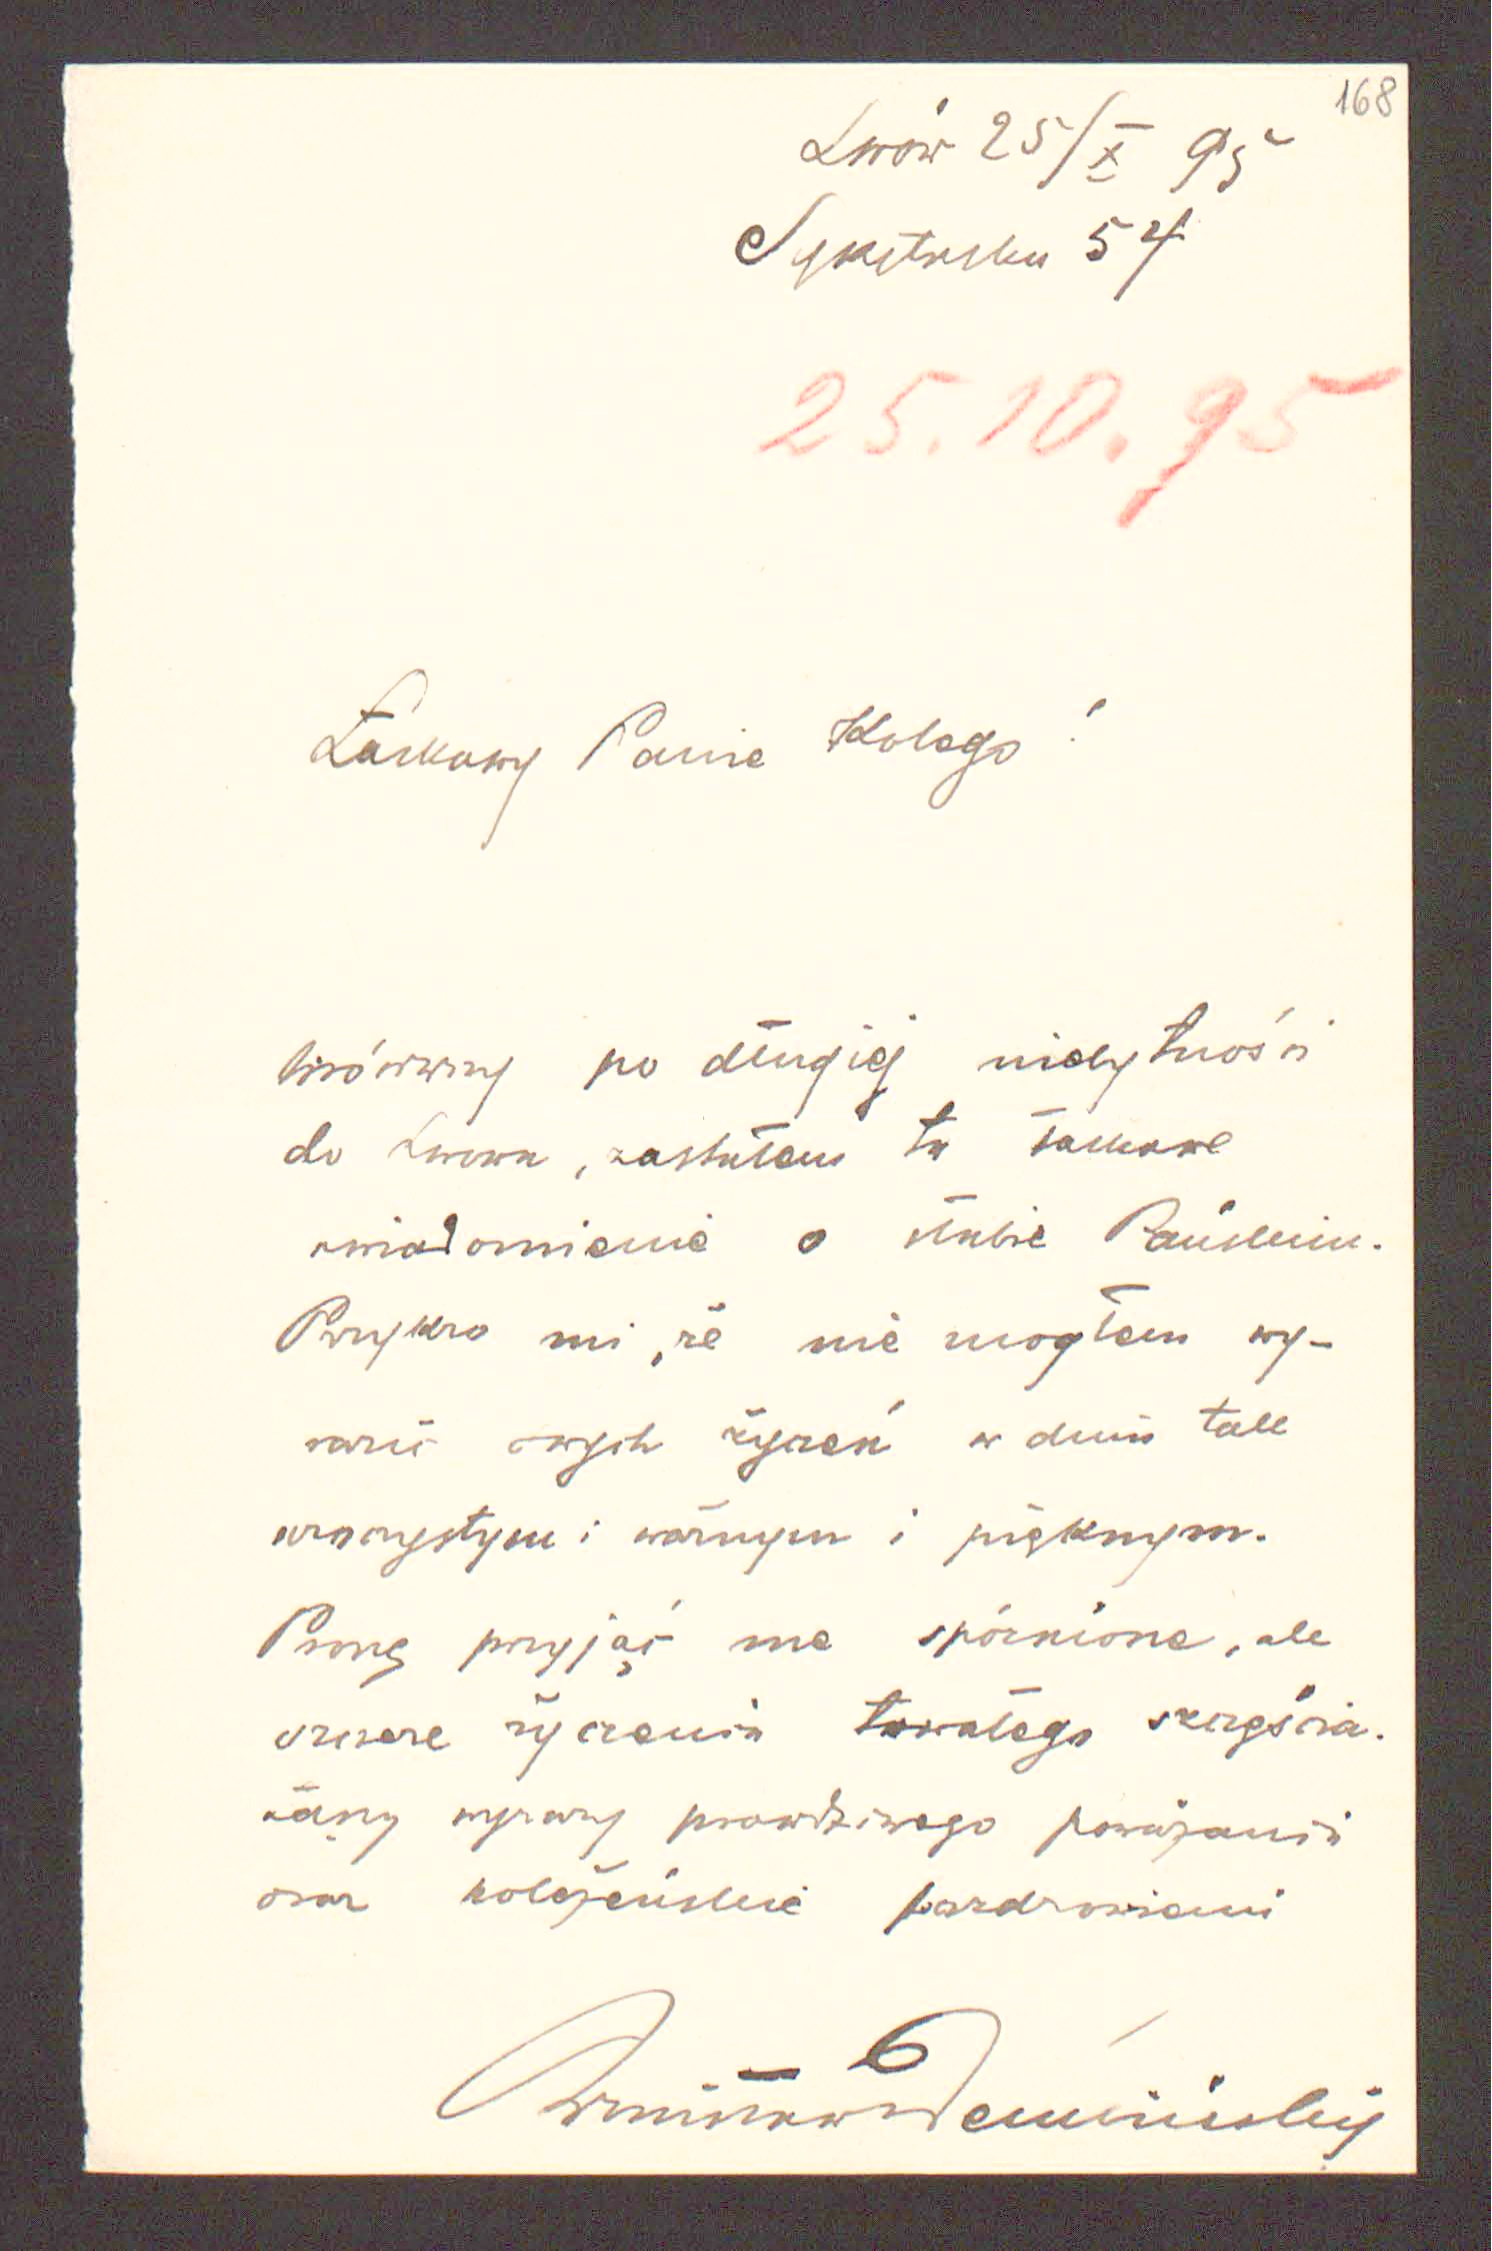 168
Lwów 25/X 95
Sykstuska 54
25.10.95
Łaskawy Panie Kolego!
Wróciwszy po długiej niebytności
do Lwowa, zastałem tu łaskawe
uwiadomienie o ślubie Pańskim.
Przykro mi, że nie mogłem wy-
razić swych życzeń w dniu tak
uroczystym i ważnym i pięknym.
Proszę przyjąć me spóźnione, ale
szczere życzenia trwałego szczęścia.
Łączę wyrazy prawdziwego poważania
oraz koleżeńskie pozdrowienia